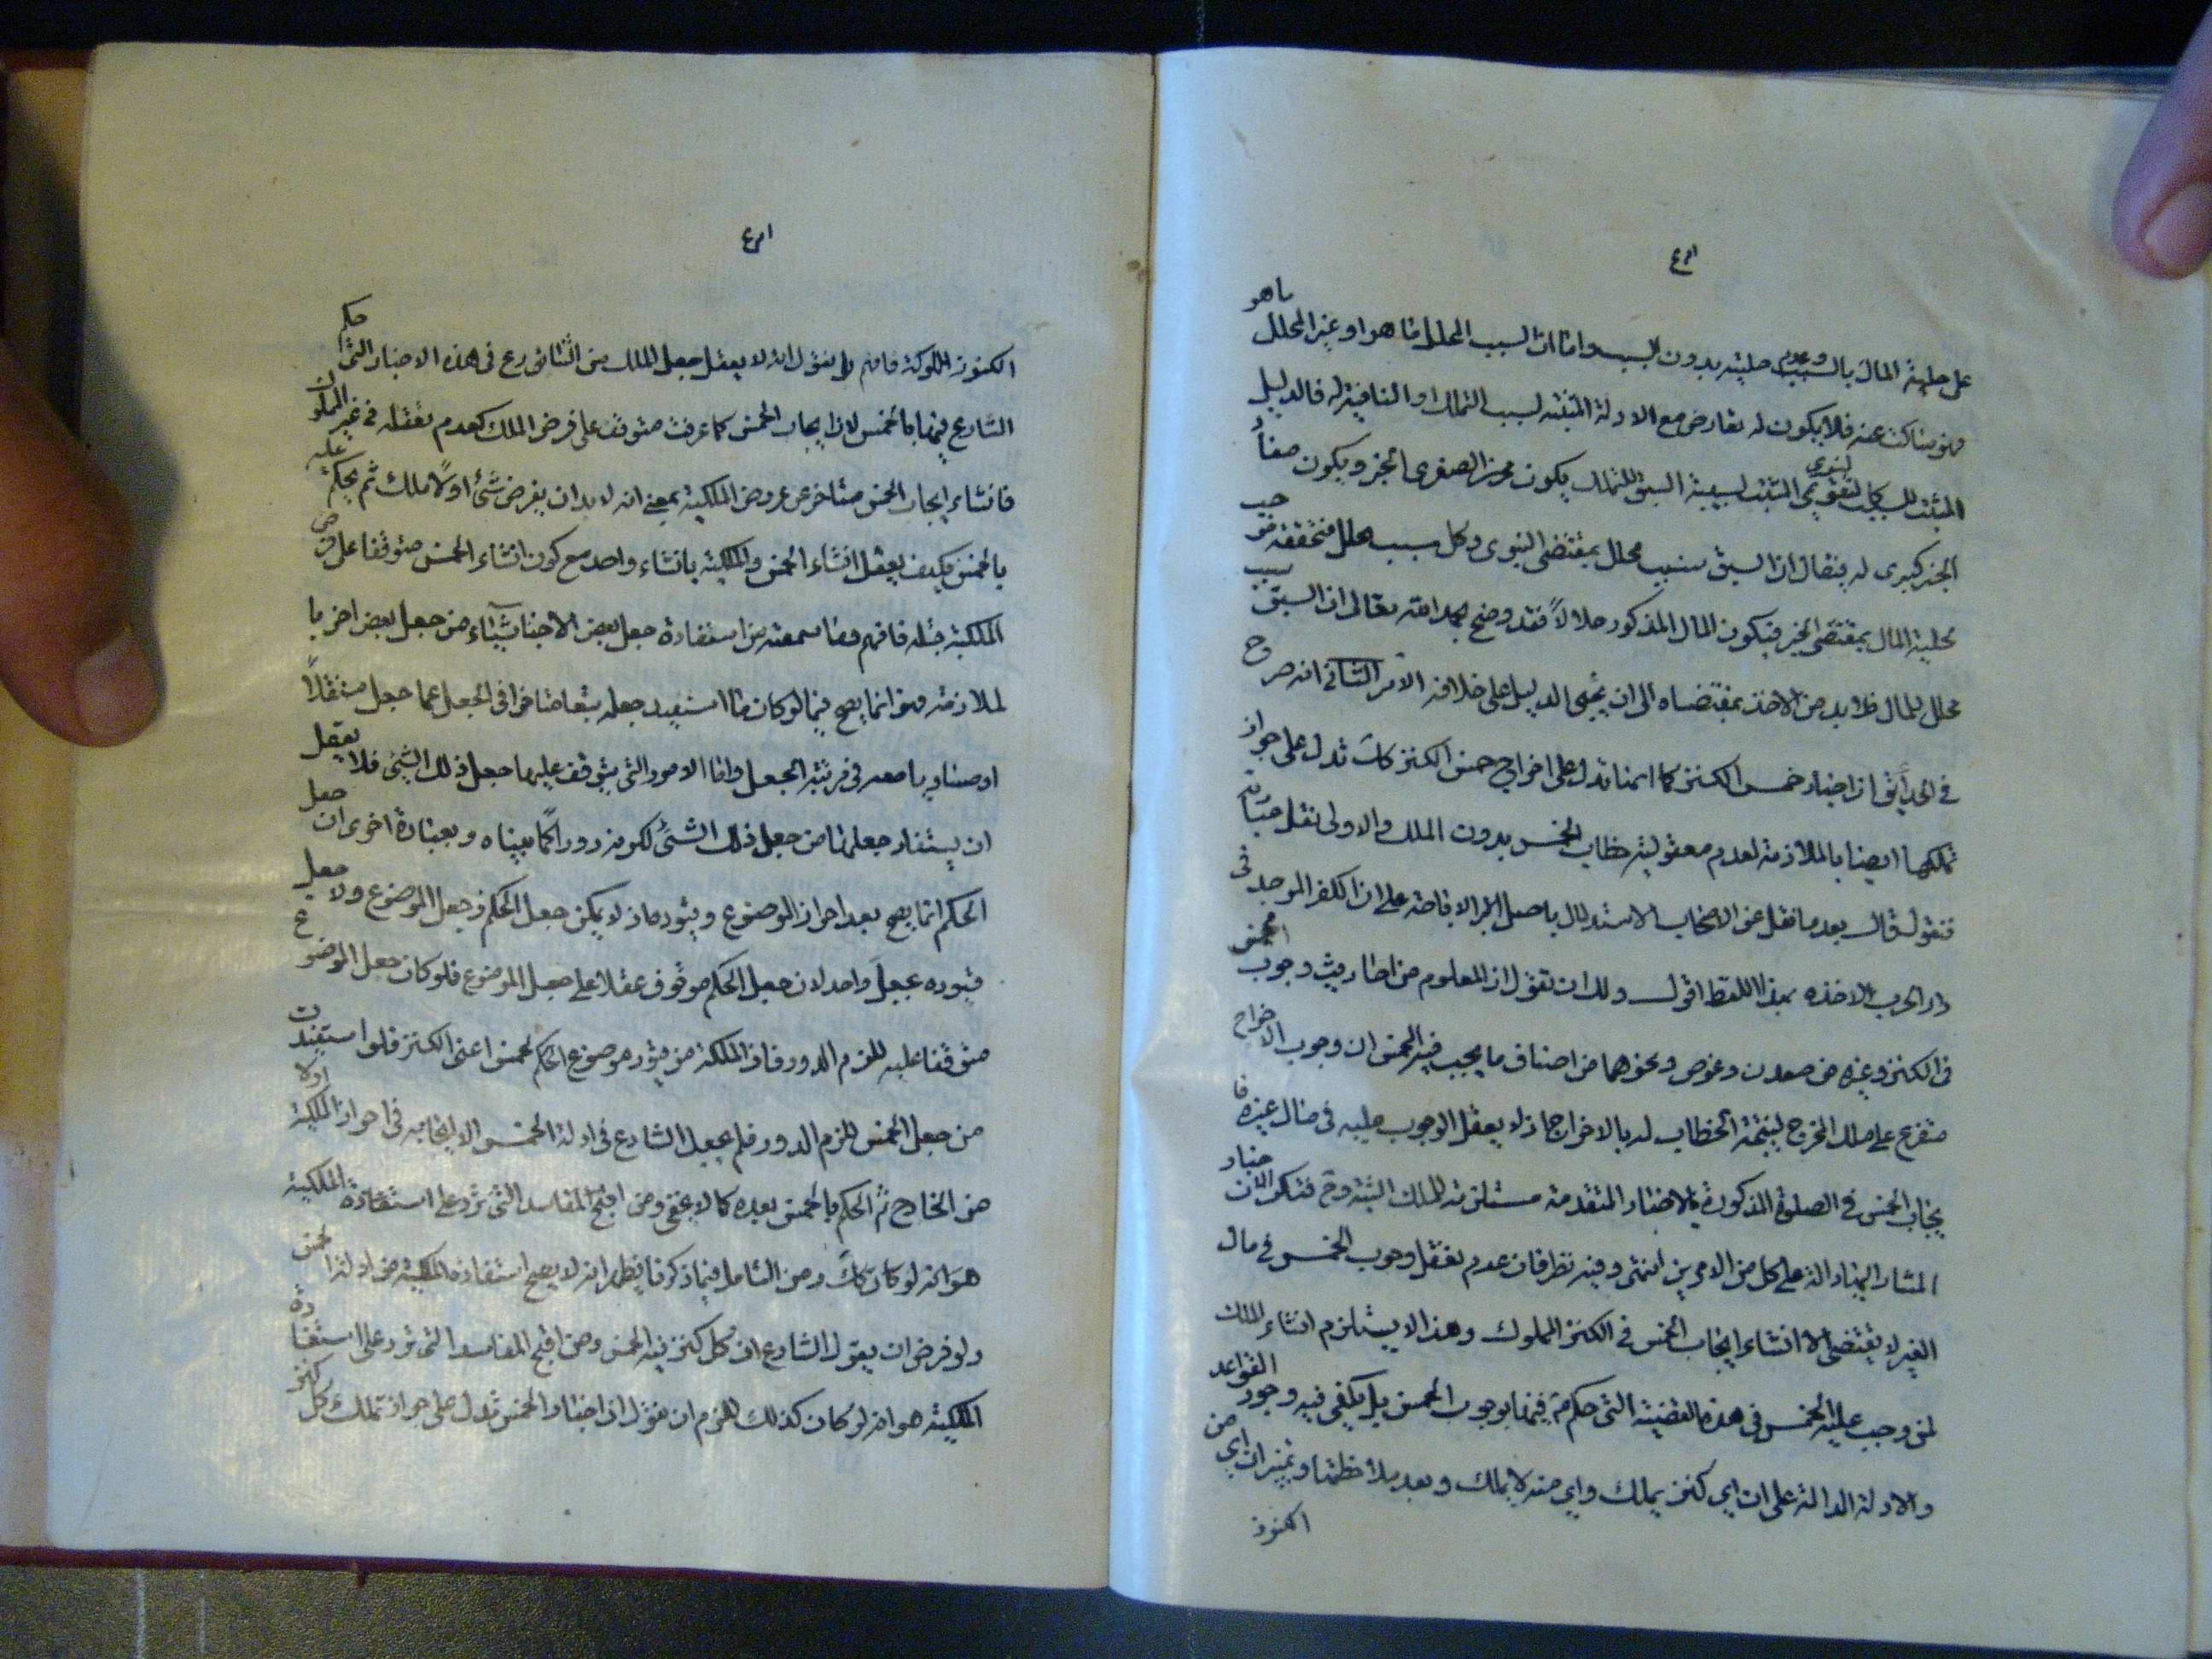 على حلية المال بالسبب وعدم حليته بدون السبب واما ان السبب المحلل ما هو او غير المحلل ما هو
فهو ساكت عنه فلا يكون له تعارض مع الادلة المثبتة لسبب التملك او النافية له فالدليل
المثبت للسبب كالنبوى المثبت لسببية السبق للتملك يكون محرز الصغرى الخبر ويكون مفاد
الخبر كبرى له فيقال ان السبق سبب محلل بمقتضى النبوى وكل سبب محلل فتحققه موجب
لحلية المال بمقتضى الخبر فيكون المال المذكور حلالاً فقد وضح بحمد الله تعالى ان السبق سبب
محلل للمال فلا بد من الاخذ بمقتضاه الى ان يجيئ الدليل على خلافه الامر الثانى انه صرح
فى الحدائق ان اخبار خمس الكنز كما انها تدل على اخراج خمس الكنز كك تدل على جواز
تملكها ايضا بالملازمة لعدم معقولية خطاب الخمس بدون الملك والاولى نقل عبارته
فنقول قال بعد ما نقل عن الاصحاب الاستدلال باصل الاباحة على ان الكنز الموجد فى
دار الحرب لاخذه بهذا اللفظ اقول ولك ان تقول ان المعلوم من احاديث وجوب الخمس
فى الكنز وغيره من معدن وغوص ونحوهما من اصناف ما يجب فيه الخمس ان وجوب الاخراج
متفرع على ملك المخرج لتبعة الخطاب له بالاخراج اذ لا يعقل الوجوب عليه فى مال غيره فا
يجاب الخمس فى الصلوة المذكورة بالاخبار المتقدمة مستلزمة للملك البتة وح فتكر الاخبار
المشار اليها دالة على كل من الامرين انتهى وفيه نظر فان عدم تعقل وجوب الخمس فى مال
الغير لا يقتضى الا انشاء ايجاب الخمس فى الكنز المملوك وهذا لا يستلزم انشاء الملك
لمن وجب عليه الخمس فى هذه القضية التى حكم فيها بوجوب الخمس بل يكفى فيه وجود القواعد
والادلة الدالة على ان اى كنز يملك واى منه لا يملك وبعد ملاحظتها وتميز ان اى من
الكنوز
الكنوز المملوكة فافهم بل نقول انه لا يعقل جعل الملك من الشارع فى هذه الاخبار التى حكم
الشارع فيها بالخمس لان ايجاب الخمس كما عرفت متوقف على فرض الملك لعدم تعقله فى غير المملوك
فانشاء ايجاب الخمس متاخر عن عروض الملكية بمعنى انه لا بد ان يفرض شئ اولاً ملك ثم يحكم عليه
بالخمس فكيف يعقل انشاء الخمس والملكية بانشاء واحد مع كون انشاء الخمس متوقفا على فرض
الملكية قبله فافهم وما سمعته من استفادة جعل بعض الاشياء من جعل بعض اخر با
لملازمة فهو انما يصح فيما لو كان ما استفيد جعله تبعا متاخرا فى الجعل عما جعل مستقلاً
او مساويا معه فى مرتبة الجعل واما الامور التى يتوقف عليها جعل ذلك الشئ فلا يعقل
ان يستفاد جعلها من جعل ذلك الشئ لكونه دورا كما بيناه وبعبارة اخرى ان جعل
الحكم انما يصح بعد احراز الموضوع وقيوده اذ لا يمكن جعل الحكم وجعل الموضوع ولا جعل
قيوده بجعل واحد لان جعل الحكم موقوف عقلا على جعل الموضوع فلو كان جعل الموضوع
متوقفا عليه للزم الدور فان الملكية من قيود موضوع الحكم الخمس اعنى الكنز فلو استفيدت
من جعل الخمس للزم الدور فلم يجعل الشارع فى ادلة الخمس الا ايجابه فى احراز الملكية اولا
من الخارج ثم الحكم بالخمس بعده كما لا يخفى ومن اقبح المفاسد التى ترد على استفادة الملكية
هو انه لو كان كك ومن التامل فيما ذكرنا يظهر انه لا يصح استفادة الملكية من ادلة الخمس
ولو فرض ان يقول الشارع ان كل كنز فيه الخمس ومن اقبح المفاسد التى ترد على استفادة
الملكية هو انه لو كان كذلك للزم ان نقول ان اخبار الخمس تدل على جواز تملك كل كنز